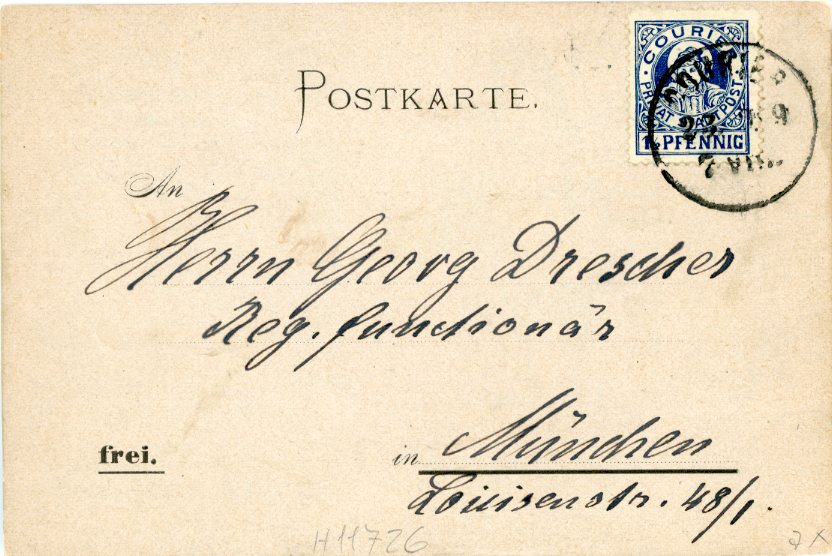 COURIER
PRIVAT STADTPOST
1½ PFENNIG
COURIER
POSTKARTE.
An
Herrn Georg Drescher
Reg. functionär
frei.
in München
Louisenstr. 48/1.
H11726